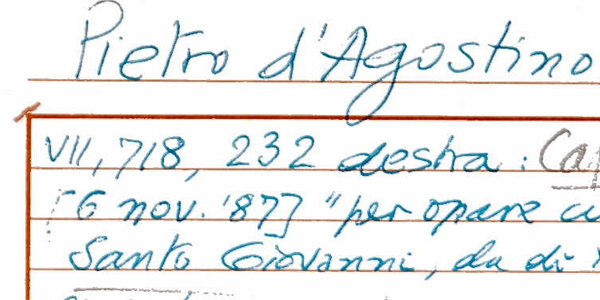 Pietro d'Agostino
VII, 718, 232 destra : Cap
[6 nov. '87] "per opare cu
Santo Giovanni, da di